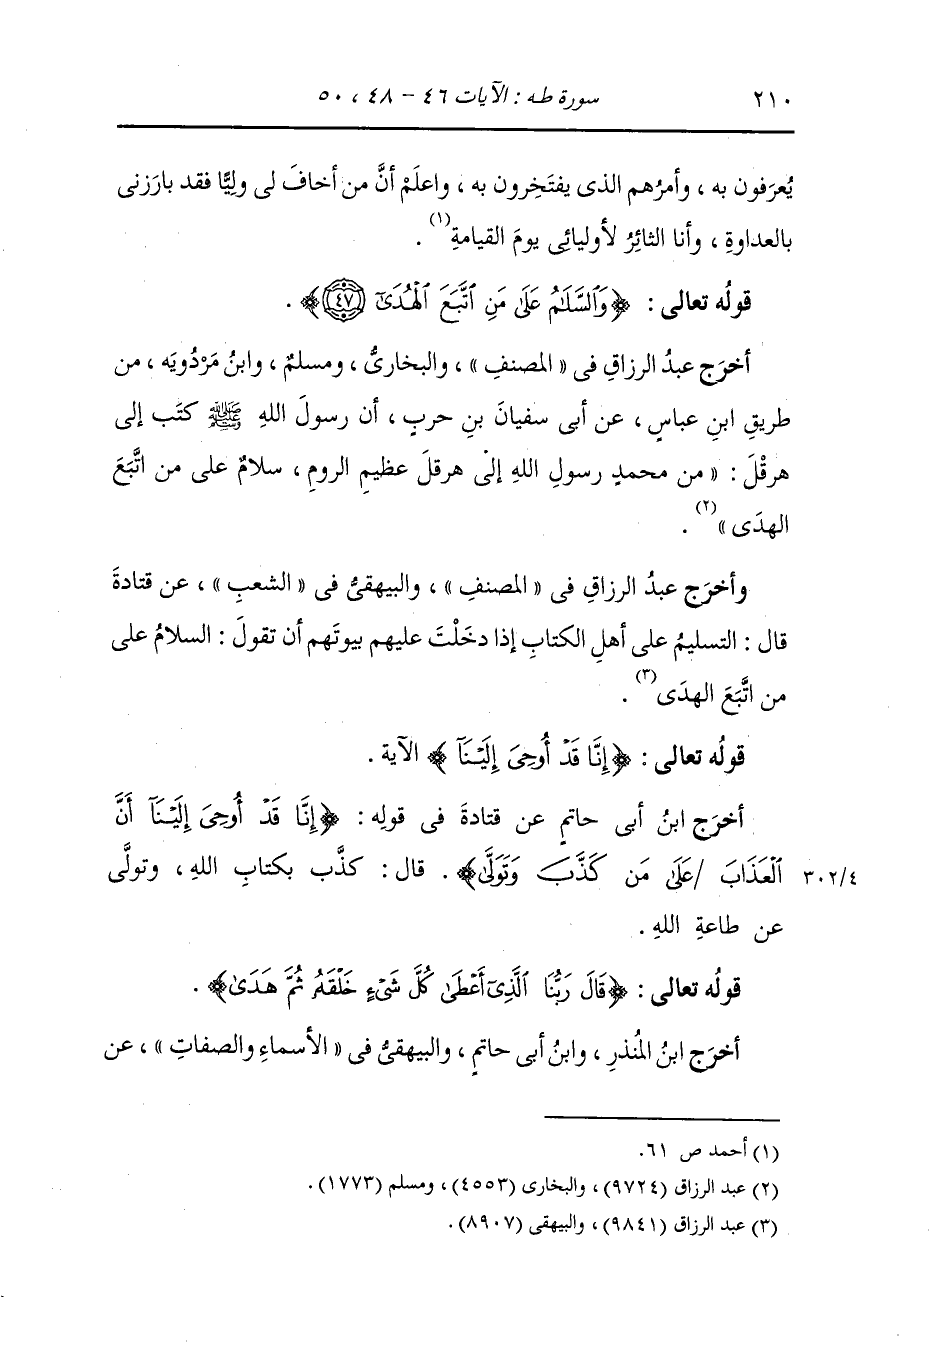 ٢١٠ سورة طه : الآيات ٤٦ - ٤٨ ، ٥٠
يُعرَفون به ، وأمرُهم الذى يفتَخِرون به ، واعلَمْ أنَّ من أخافَ لى وليًّا فقد بارَزنى
بالعداوةِ ، وأنا الثائِرُ لأوليائِى يومَ القيامةِ(١) .
قولُه تعالى : ﴿وَٱلسَّلَٰمُ عَلَىٰ مَنِ ٱتَّبَعَ ٱلْهُدَىٰٓ ٤٧﴾ .
أخرَج عبدُ الرزاقِ فى « المصنفِ » ، والبخارىُّ ، ومسلمٌ ، وابنُ مَرْدُويَه ، من
طريقِ ابنِ عباسٍ ، عن أبى سفيانَ بنِ حربٍ ، أن رسولَ اللهِ ﷺ كتَب إلى
هرقْلَ : « من محمدٍ رسولِ اللهِ إلىٰ هرقلَ عظيمِ الرومِ ، سلامٌ على من اتَّبَعَ
الهدَى »(٢) .
وأخرَج عبدُ الرزاقِ فى « المصنفِ » ، والبيهقىُّ فى « الشعبِ » ، عن قتادةَ
قال : التسليمُ على أهلِ الكتابِ إذا دخَلْتَ عليهم بيوتَهم أن تقولَ : السلامُ على
من اتَّبَعَ الهدَى(٣) .
قولُه تعالى : ﴿إِنَّا قَدْ أُوحِىَ إِلَيْنَآ﴾ الآية .
أخرَج ابنُ أبى حاتمٍ عن قتادةَ فى قولِه : ﴿إِنَّا قَدْ أُوحِىَ إِلَيْنَآ أَنَّ
ٱلْعَذَابَ /عَلَىٰ مَن كَذَّبَ وَتَوَلَّىٰ﴾ . قال : كذَّب بكتابِ اللهِ ، وتولَّى ٣٠٢/٤
عن طاعةِ اللهِ .
قولُه تعالى : ﴿قَالَ رَبُّنَا ٱلَّذِىٓ أَعْطَىٰ كُلَّ شَىْءٍ خَلْقَهُۥ ثُمَّ هَدَىٰ﴾ .
أخرَج ابنُ المُنذرِ ، وابنُ أبى حاتمٍ ، والبيهقىُّ فى « الأسماءِ والصفاتِ » ، عن
(١) أحمد ص ٦١.
(٢) عبد الرزاق (٩٧٢٤)، والبخارى (٤٥٥٣)، ومسلم (١٧٧٣).
(٣) عبد الرزاق (٩٨٤١)، والبيهقى (٨٩٠٧).